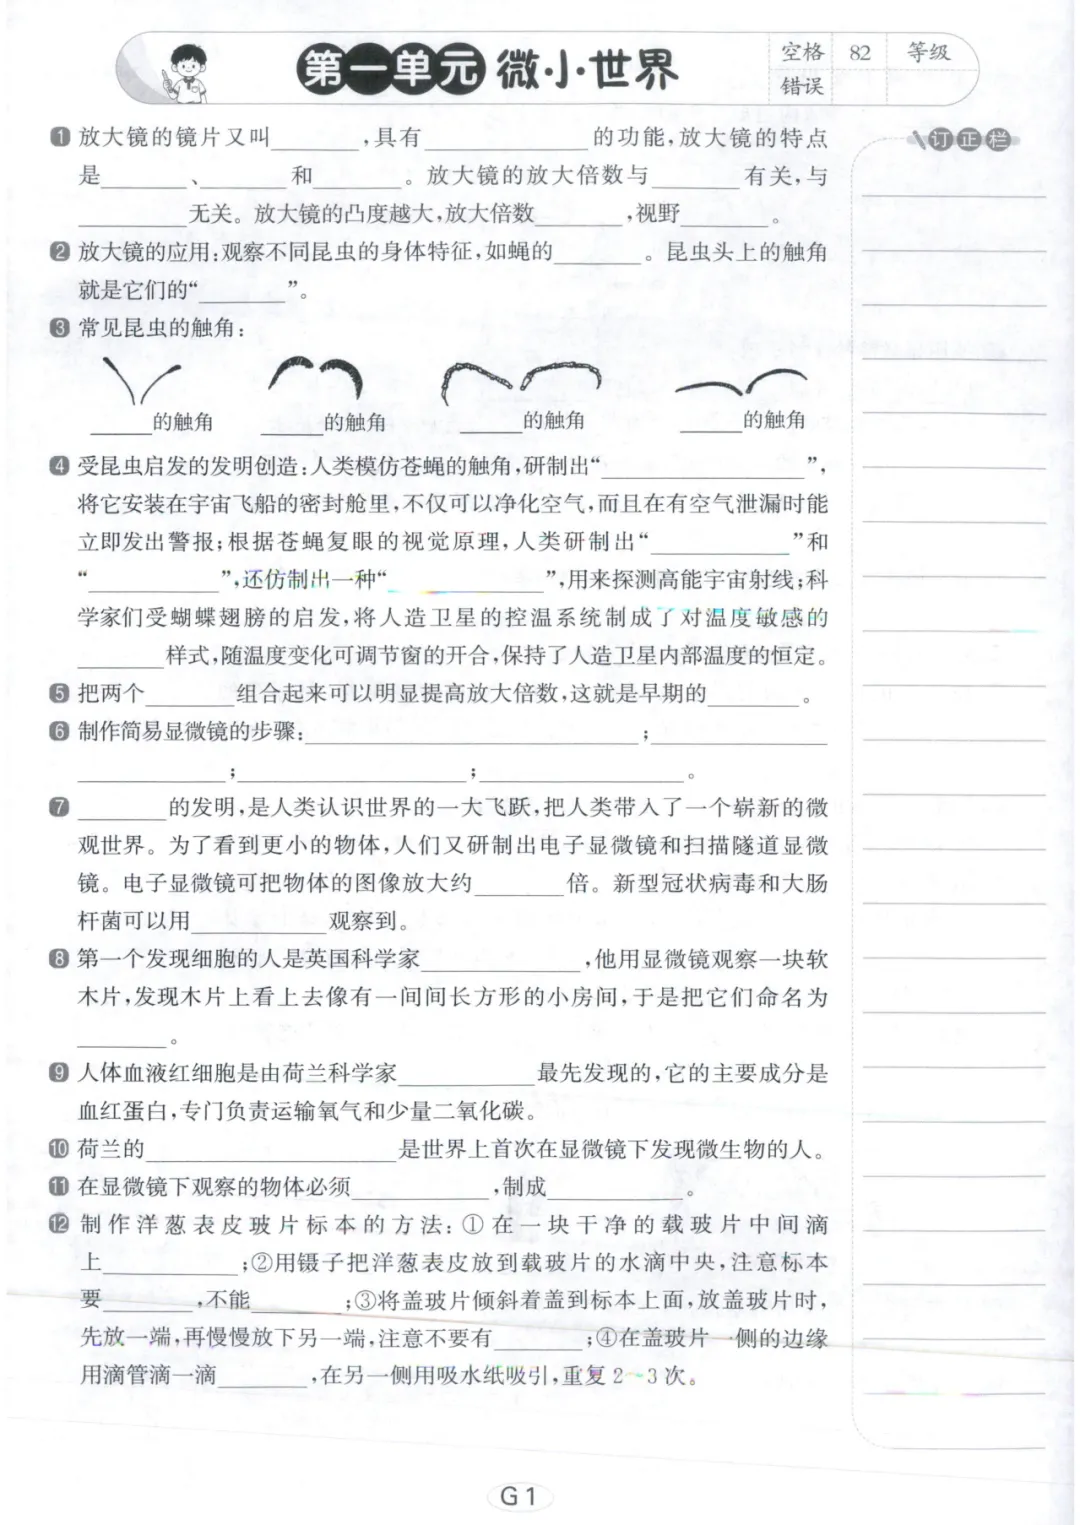 第一单元 微小世界
空格 82 等级
错误
订正栏
1 放大镜的镜片又叫________,具有________的功能,放大镜的特点
是________、________和________。放大镜的放大倍数与________有关,与
________无关。放大镜的凸度越大,放大倍数________,视野________。
2 放大镜的应用:观察不同昆虫的身体特征,如蝇的________。昆虫头上的触角
就是它们的“________”。
3 常见昆虫的触角:
________的触角 ________的触角 ________的触角 ________的触角
4 受昆虫启发的发明创造:人类模仿苍蝇的触角,研制出“________”,
将它安装在宇宙飞船的密封舱里,不仅可以净化空气,而且在有空气泄漏时能
立即发出警报;根据苍蝇复眼的视觉原理,人类研制出“________”和
“________”,还仿制出一种“________”,用来探测高能宇宙射线;科
学家们受蝴蝶翅膀的启发,将人造卫星的控温系统制成了对温度敏感的
________样式,随温度变化可调节窗的开合,保持了人造卫星内部温度的恒定。
5 把两个________组合起来可以明显提高放大倍数,这就是早期的________。
6 制作简易显微镜的步骤:________;________
________;________;________。
7 ________的发明,是人类认识世界的一大飞跃,把人类带入了一个崭新的微
观世界。为了看到更小的物体,人们又研制出电子显微镜和扫描隧道显微
镜。电子显微镜可把物体的图像放大约________倍。新型冠状病毒和大肠
杆菌可以用________观察到。
8 第一个发现细胞的人是英国科学家________,他用显微镜观察一块软
木片,发现木片上看上去像有一间间长方形的小房间,于是把它们命名为
________。
9 人体血液红细胞是由荷兰科学家________最先发现的,它的主要成分是
血红蛋白,专门负责运输氧气和少量二氧化碳。
10 荷兰的________是世界上首次在显微镜下发现微生物的人。
11 在显微镜下观察的物体必须________,制成________。
12 制作洋葱表皮玻片标本的方法:①在一块干净的载玻片中间滴
上________;②用镊子把洋葱表皮放到载玻片的水滴中央,注意标本
要________,不能________;③将盖玻片倾斜着盖到标本上面,放盖玻片时,
先放一端,再慢慢放下另一端,注意不要有________;④在盖玻片一侧的边缘
用滴管滴一滴________,在另一侧用吸水纸吸引,重复2~3次。
G1